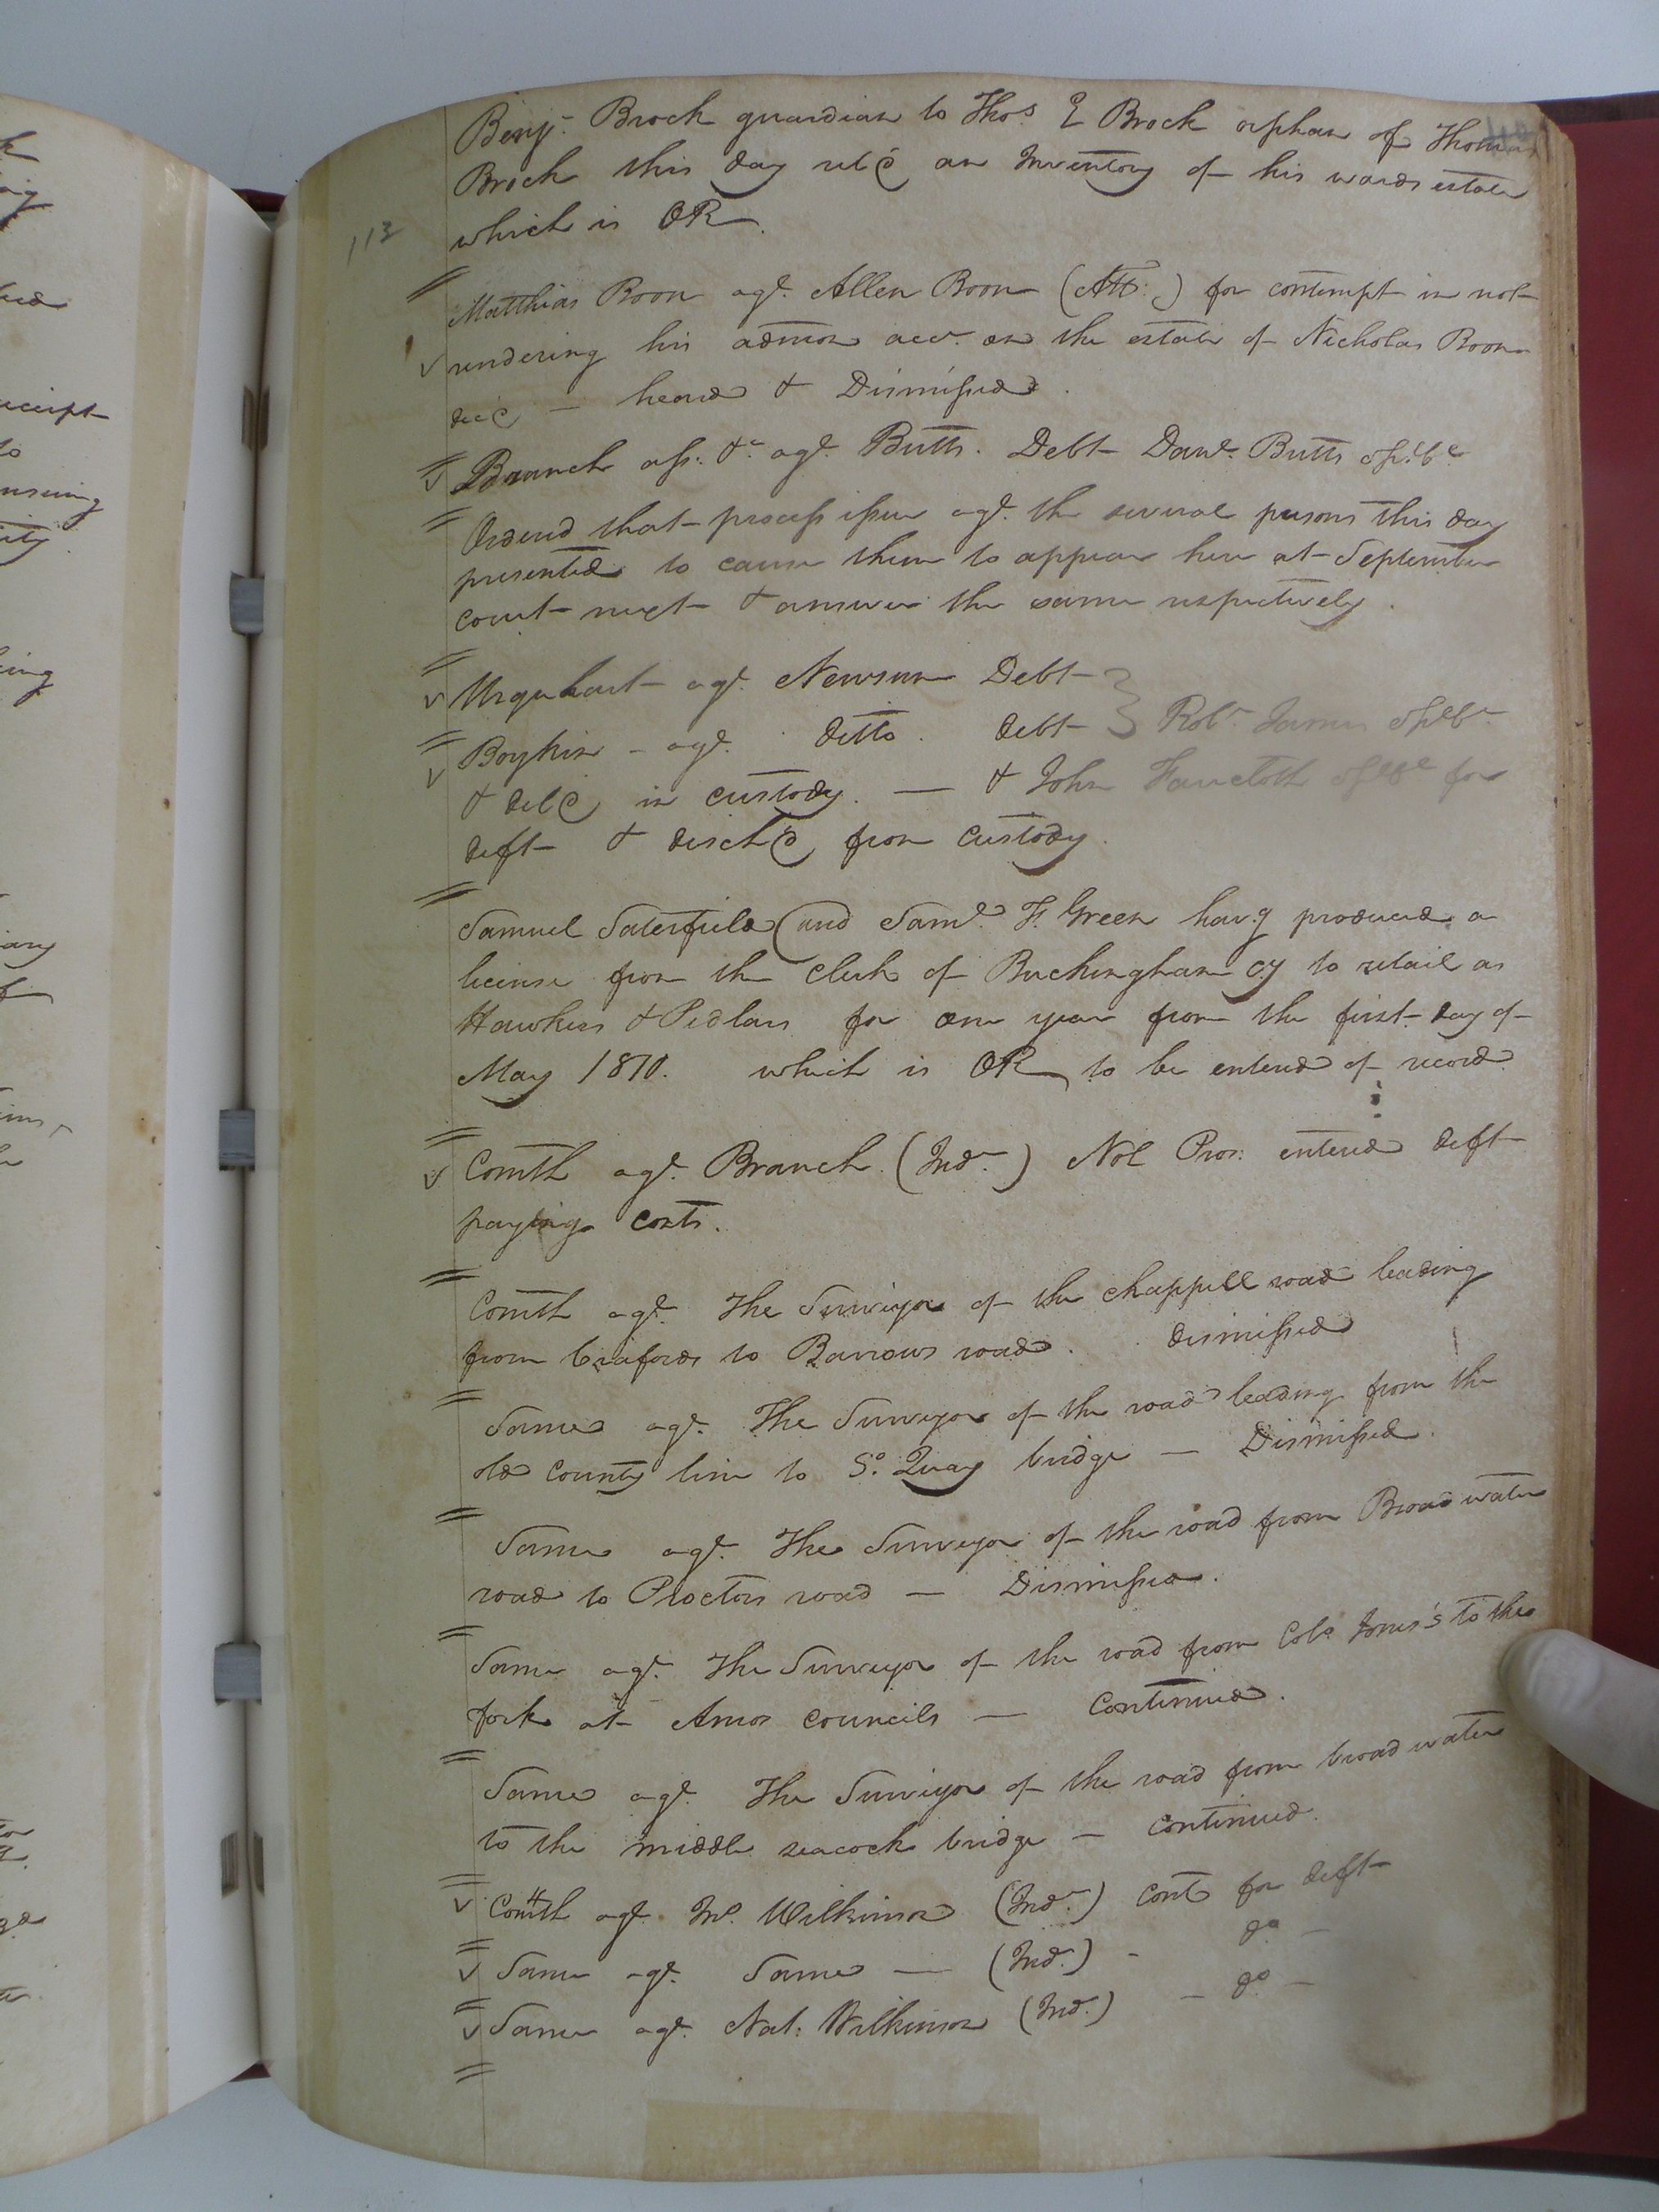 Benj. Brock guardian to Thos. E Brock orphan of Thomas
Brock this day retd an Inventory of his wards estate
which is OR.
113
Matthias Boon agt. Allen Boon (Att:) for contempt in not
rendering his admon acct. on the estate of Nicholas Boon
decd — heard & Dismissed.
Branch ass. &c. agt. Butts. Debt Danl. Butts spl. bl.
Ordered that process issue agt. the several persons this day
presented to cause them to appear here at September
court next & answer the same respectively.
Urquhart agt. Newsum Debt
Boykin - agt. ditto. debt } Robt. James spl bl.
& deld in custody. — & John spl bl for
deft & dischd from custody.
Samuel Saterfield and Saml. F. Green havg produced a
license from the Clerk of Buckingham Cy to retail as
Hawkers & Pedlars for one year from the first day of
May 1810. which is OR to be entered of record.
Comth agt. Branch (Indt.) Nol Pros: entered deft
paying costs.
Comth agt. The Surveyor of the chappell road leading
from to Barrows road. dismissed
Same agt. The Surveyor of the road leading from the
old County line to So. Quay bridge — Dismissed.
Same agt. The Surveyor of the road from Broadwater
road to Proctors road — Dismissed.
Same agt. The Surveyor of the road from Colo Jones's to the
fork at Amos Councils — Continued.
Same agt. The Surveyor of the road from broad water
to the middle seacock bridge — continued.
Comth agt. Jno. Wilkinson (Indt.) contd for deft
Same agt. Same — (Indt.) - do. —
Same agt. Nat: Wilkinson (Indt.) — do. —